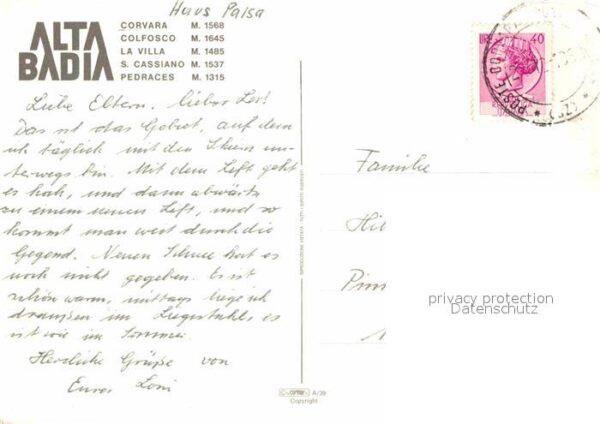 Haus Palsa
ALTA
BADIA
CORVARA M. 1568
COLFOSCO M. 1645
LA VILLA M. 1485
S. CASSIANO M. 1537
PEDRACES M. 1315
LIRE 40
POSTE
Liebe Eltern, lieber
Das ist das Gebiet, auf dem
ich täglich mit den Skiern un-
terwegs bin. Mit dem Lift geht
es hoh, und dann abwärts
zu einem neuen Lift, und so
kommt man weit durch die
Gegend. Neuen Schnee hat es
noch nicht gegeben. Es ist
schön warm, mittags liege ich
draußen im Liegestuhl, es
ist wie im Sommer.
Herzliche Grüße von
Loni
RIPRODUZIONE VIETATA
Familie
privacy protection
Datenschutz
A/39
Copyright